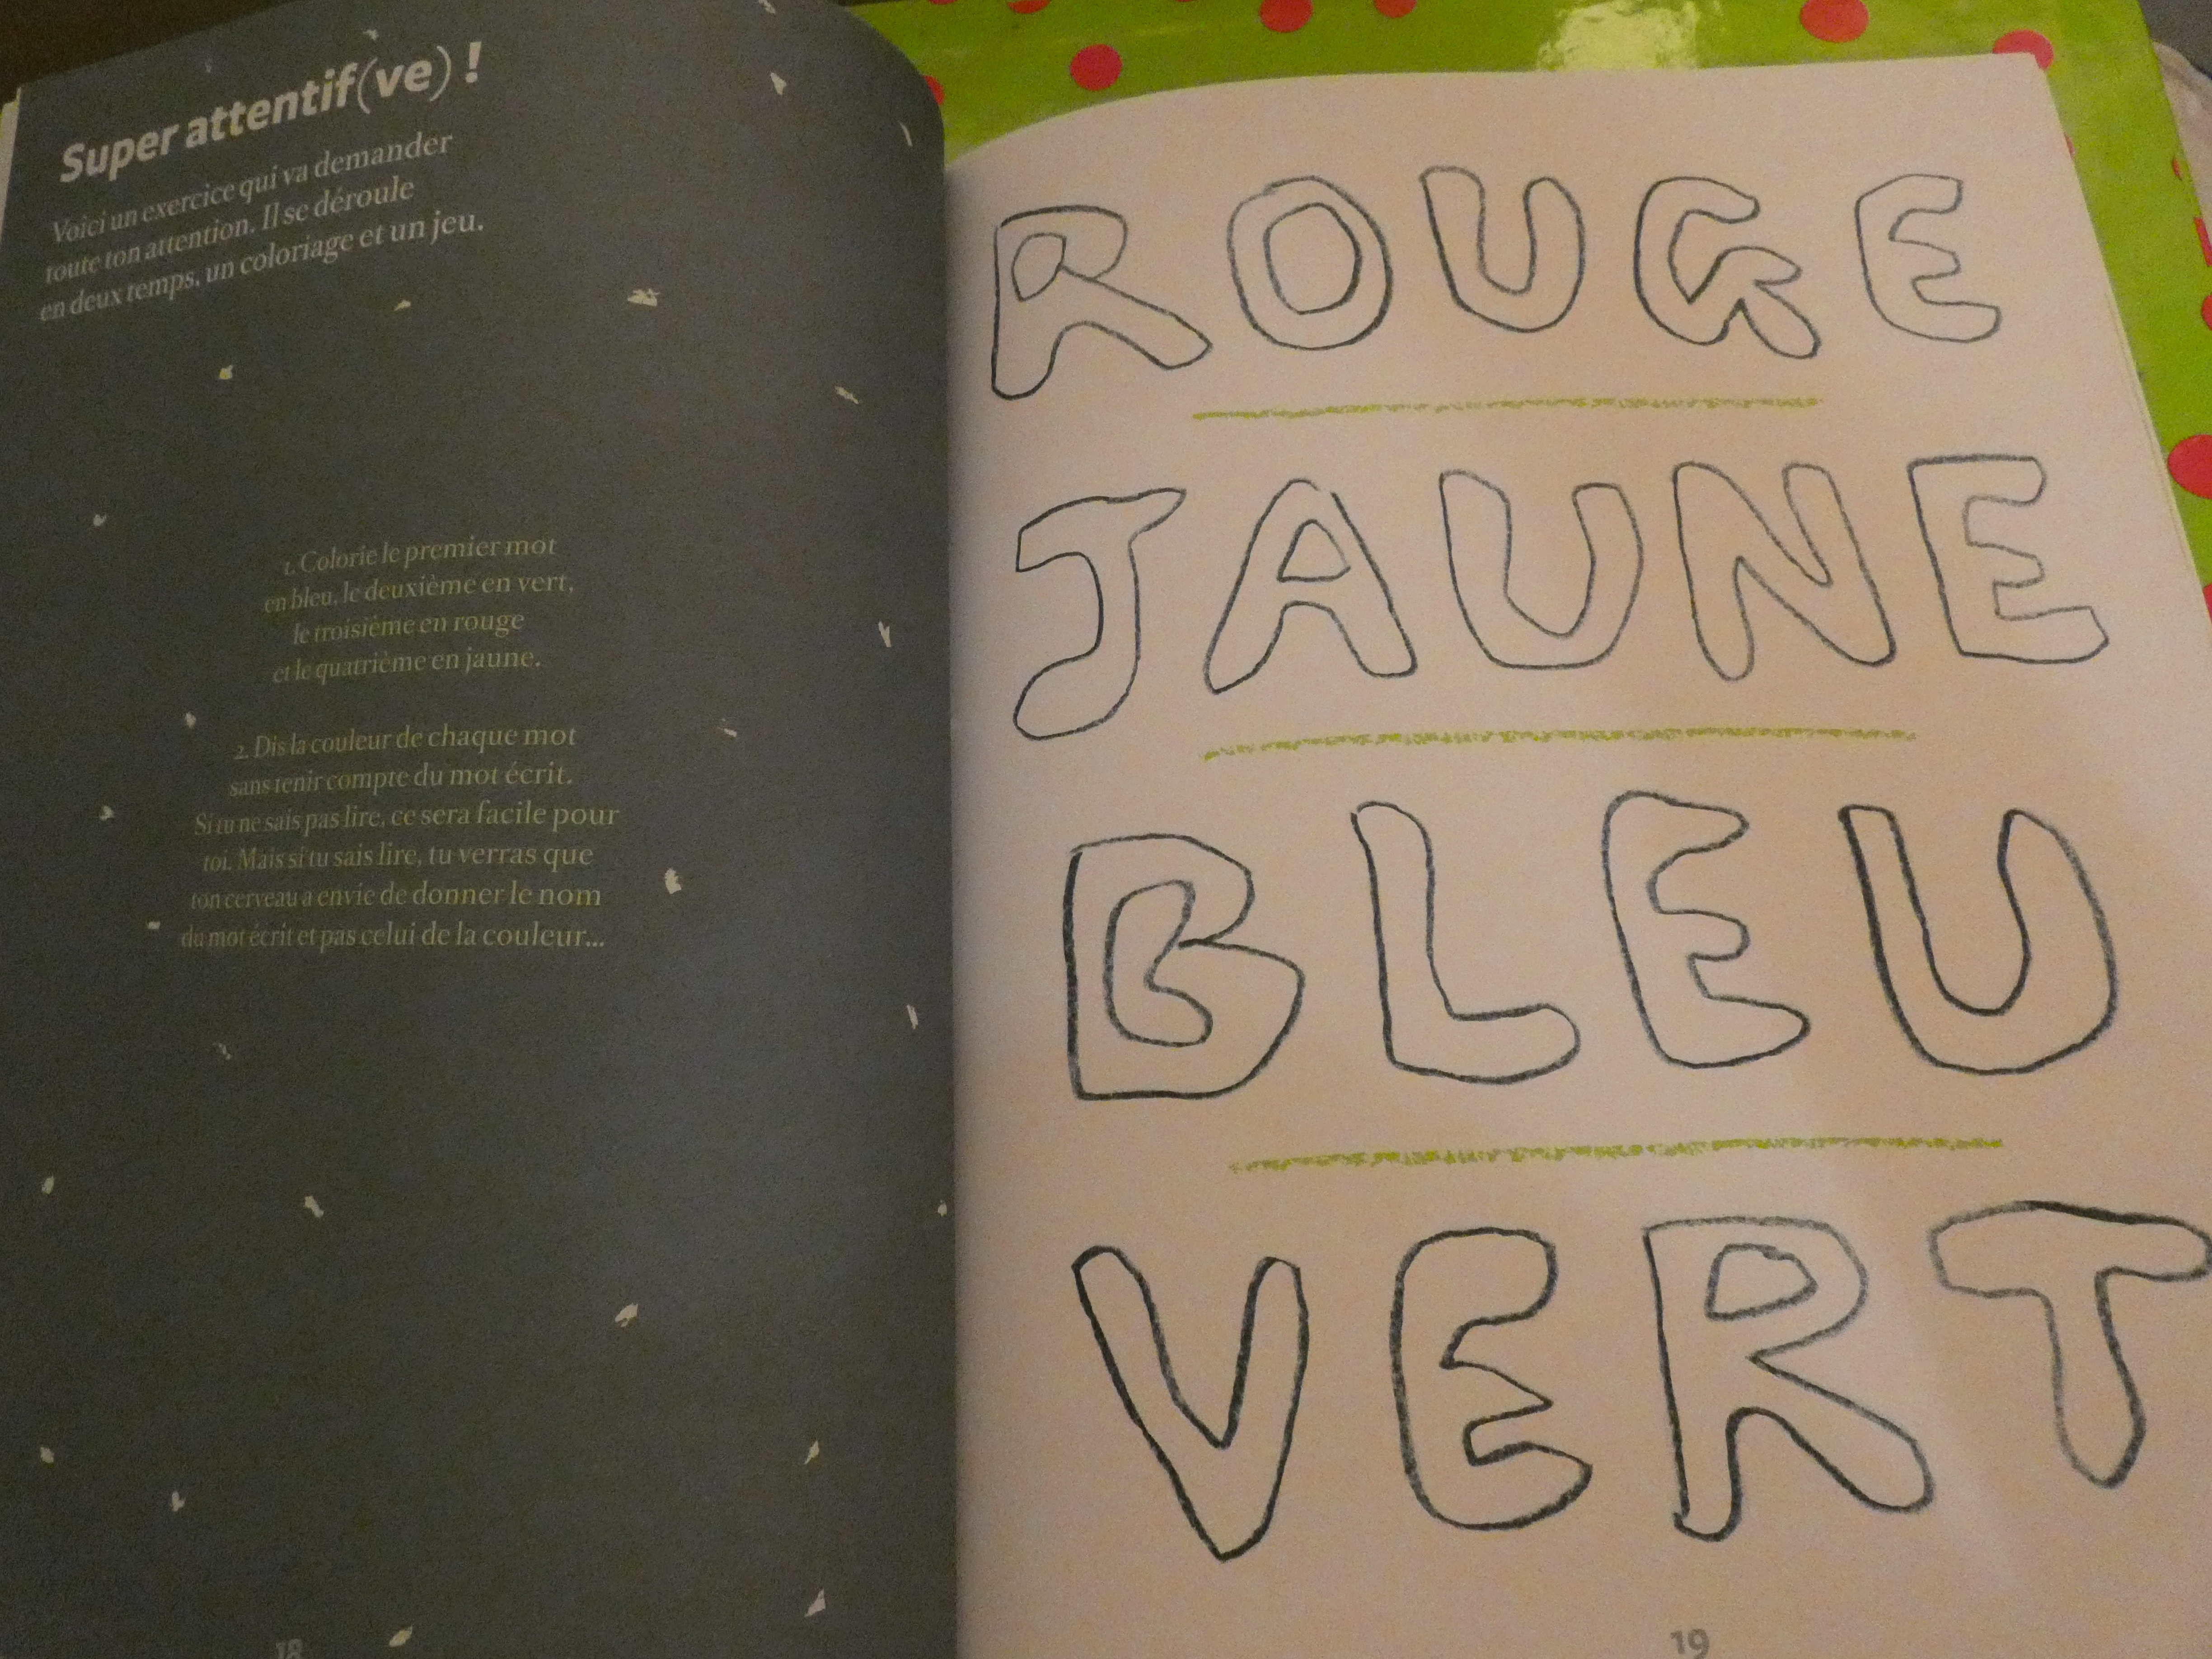 Super attentif(ve) !
Voici un exercice qui va demander
toute ton attention. Il se déroule
en deux temps, un coloriage et un jeu.
1. Colorie le premier mot
en bleu, le deuxième en vert,
le troisième en rouge
et le quatrième en jaune.
2. Dis la couleur de chaque mot
sans tenir compte du mot écrit.
Si tu ne sais pas lire, ce sera facile pour
toi. Mais si tu sais lire, tu verras que
ton cerveau a envie de donner le nom
du mot écrit et pas celui de la couleur...
18
ROUGE
JAUNE
BLEU
VERT
19